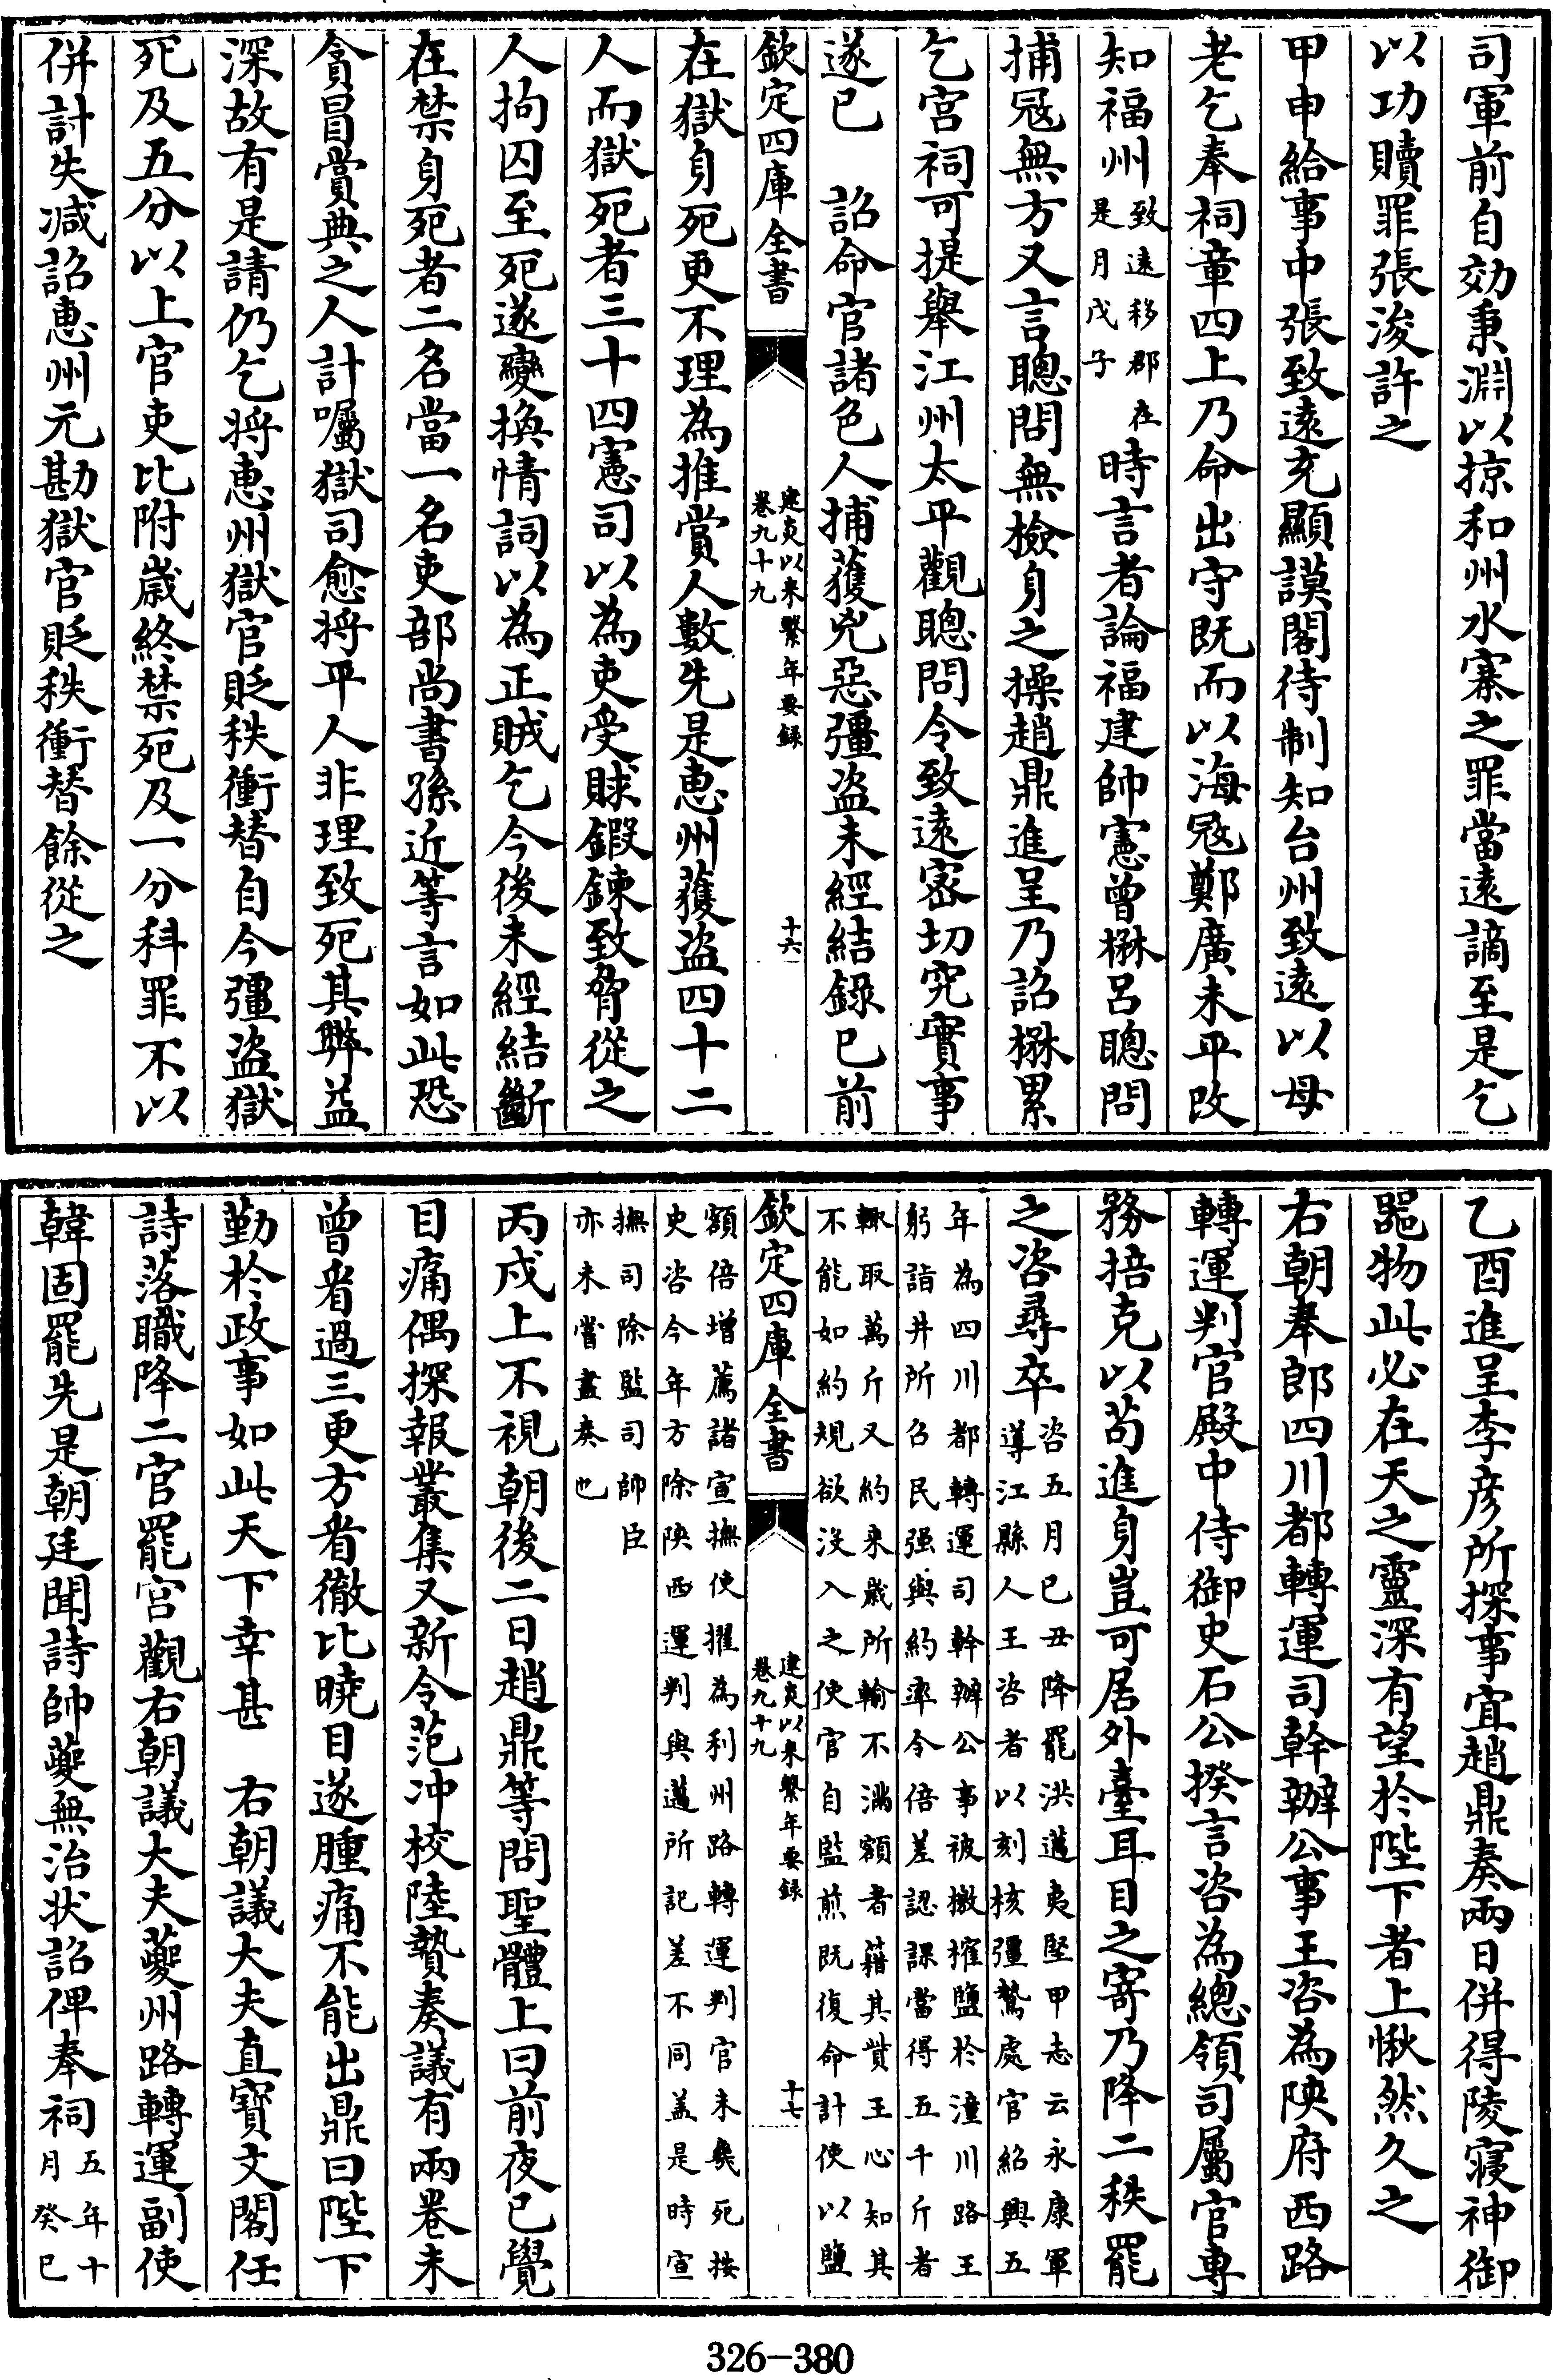 司軍前自効秉淵以掠和州水寨之罪當遠謫至是乞
以功贖罪張浚許之
甲申給事中張致遠充顯謨閣待制知台州致遠以母
老乞奉祠章四上乃命出守既而以海冦鄭廣未平改
知福州致遠移郡在是月戊子時言者論福建帥憲曾楙呂聰問
捕冦無方又言聰問無檢身之操趙鼎進呈乃詔楙累
乞宮祠可提舉江州太平觀聰問令致遠密切究實事
遂已 詔命官諸色人捕獲兇惡彊盗未經結錄已前
欽定四庫全書 建炎以來繫年要録 卷九十九 十六
在獄身死更不理為推賞人數先是惠州獲盗四十二
人而獄死者三十四憲司以為吏受賕鍜鍊致脅從之
人拘囚至死遂變換情詞以為正賊乞今後未經結斷
在禁身死者二名當一名吏部尚書孫近等言如此恐
貪冒賞典之人計囑獄司愈將平人非理致死其弊益
深故有是請仍乞將惠州獄官貶秩衝替自今彊盗獄
死及五分以上官吏比附歲終禁死及一分科罪不以
併計失减詔惠州元勘獄官貶秩衝替餘從之
乙酉進呈李彦所探事宜趙鼎奏兩日併得陵寢神御
噐物此必在天之靈深有望於陛下者上愀然久之
右朝奉郎四川都轉運司幹辦公事王咨為陜府西路
轉運判官殿中侍御史石公揆言咨為總領司屬官專
務掊克以苟進身豈可居外臺耳目之寄乃降二秩罷
之咨尋卒咨五月已丑降罷洪邁夷堅甲志云永康軍
導江縣人王咨者以刻核彊鷙處官紹興五
年為四川都轉運司幹辦公事被檄榷鹽於潼川路王
躬詣井所召民强與約率令倍差認課當得五千斤者
輒取萬斤又約來歲所輸不滿額者籍其貲王心知其
不能如約規欲沒入之使官自監煎既復命計使以鹽
欽定四庫全書 建炎以來繫年要録 卷九十九 十七
額倍增薦諸宣撫使擢為利州路轉運判官未幾死按
史咨今年方除陜西運判與邁所記差不同盖是時宣
撫司除監司帥臣
亦未嘗盡奏也
丙戌上不視朝後二日趙鼎等問聖體上曰前夜已覺
目痛偶探報叢集又新令范冲校陸贄奏議有兩卷未
曾看過三更方看徹比曉目遂腫痛不能出鼎曰陛下
勤於政事如此天下幸甚 右朝議大夫直寳文閣任
詩落職降二官罷宮觀右朝議大夫夔州路轉運副使
韓固罷先是朝廷聞詩帥夔無治状詔俾奉祠五年十
月癸巳
326-380